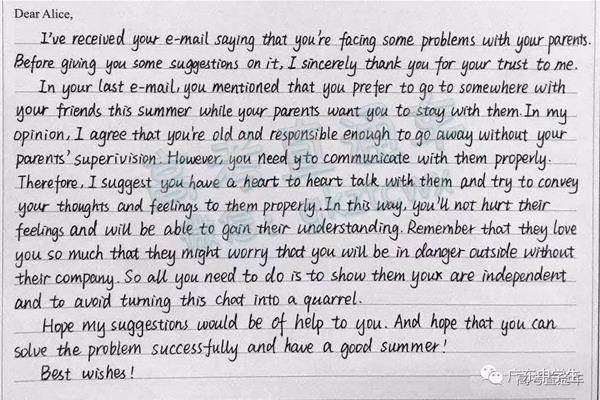 Dear Alice,
I've received your e-mail saying that you're facing some problems with your parents.
Before giving you some suggestions on it, I sincerely thank you for your trust to me.
In your last e-mail, you mentioned that you prefer to go to somewhere with
your friends this summer while your parents want you to stay with them. In my
opinion, I agree that you're old and responsible enough to go away without your
parents' superivision. However, you need yto communicate with them properly.
Therefore, I suggest you have a heart to heart talk with them and try to convey
your thoughts and feelings to them properly. In this way, you'll not hurt their
feelings and will be able to gain their understanding. Remember that they love
you so much that they might worry that you will be in danger outside without
their company. So all you need to do is to show them you are independent
and to avoid turning this chat into a quarrel.
Hope my suggestions would be of help to you. And hope that you can
solve the problem successfully and have a good summer!
Best wishes!
高考直通车